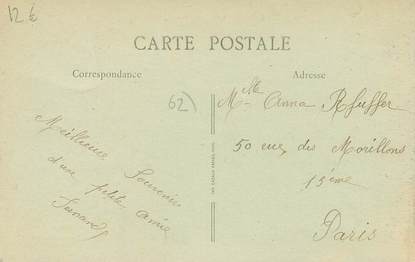 12 €
CARTE POSTALE
Correspondance
Adresse
62)
Meilleurs Souvenirs
d'une ptite amie
Mlle Anna
50 rue des Morillons
15ème
Paris